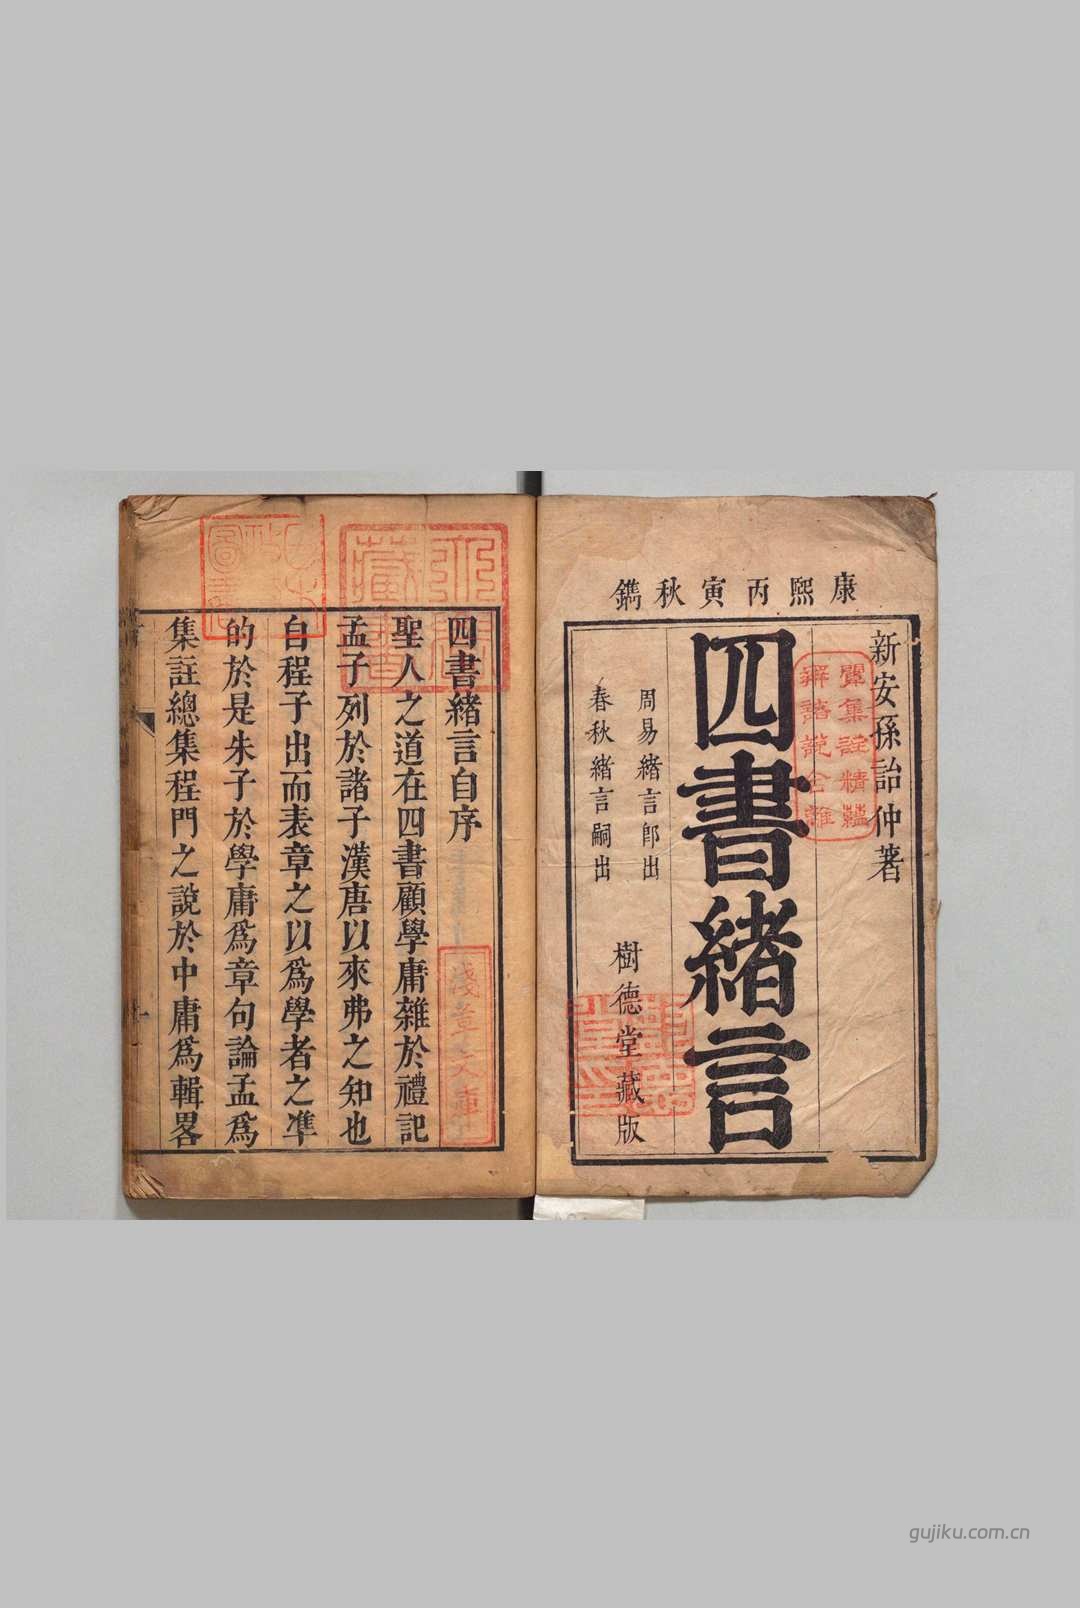 康熙丙寅秋鐫
新安孫詒仲著
闡集註精蘊
辭諸說合離
四書緒言
周易緒言卽出
春秋緒言嗣出
樹德堂藏版
四書緒言自序
聖人之道在四書顧學庸雜於禮記
孟子列於諸子漢唐以來弗之知也
自程子出而表章之以爲學者之準
的於是朱子於學庸爲章句論孟爲
集註總集程門之說於中庸爲輯畧
淺草文庫
gujiku.com.cn